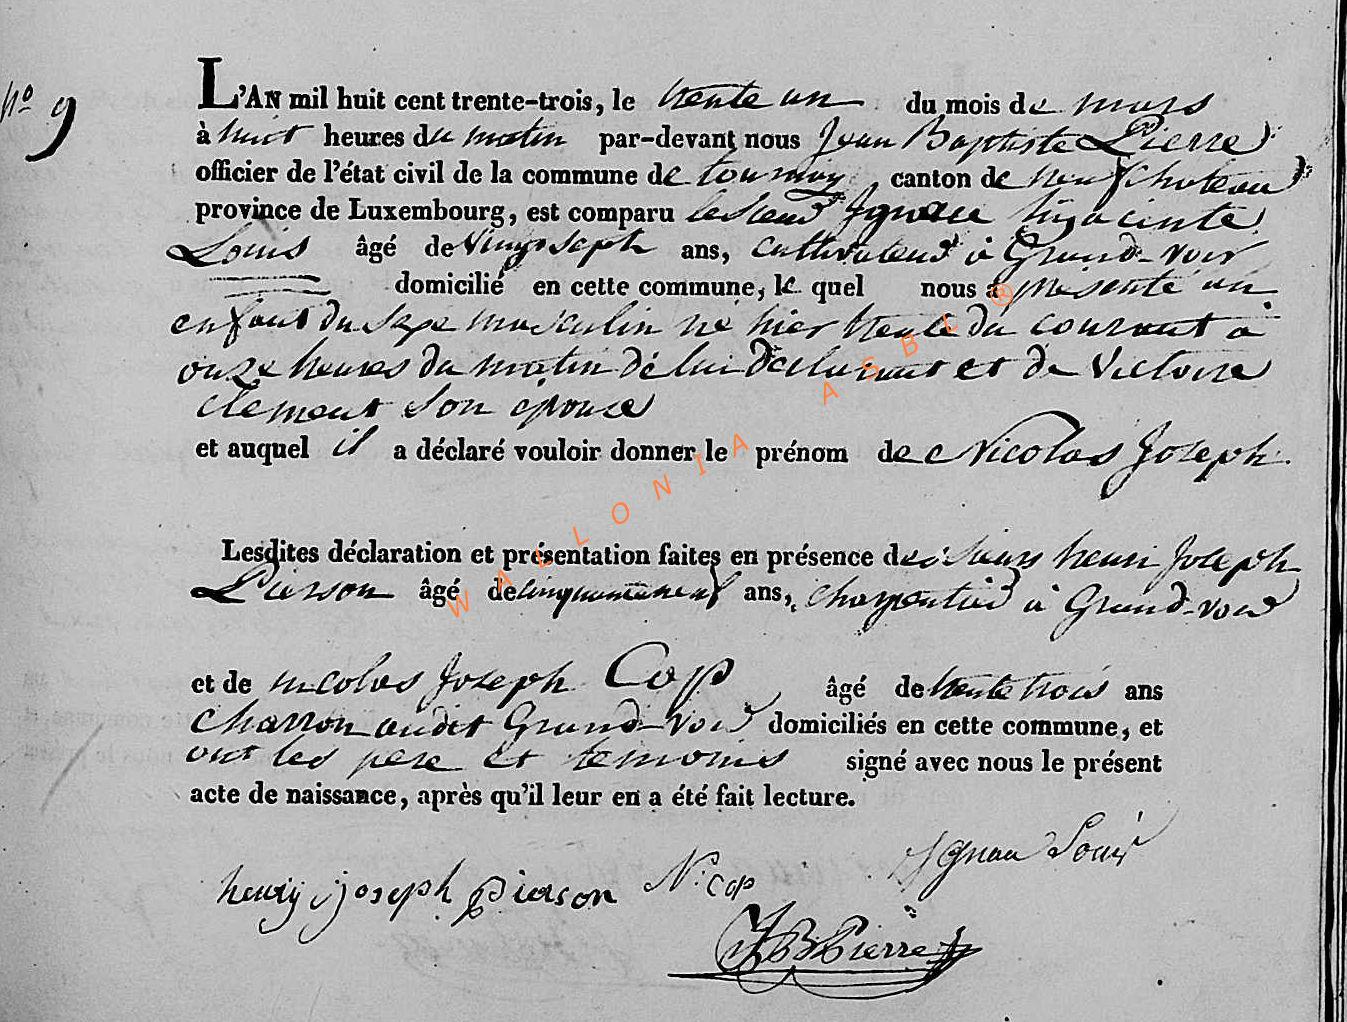 N° 9
L'AN mil huit cent trente-trois, le trente un du mois de mars
à huit heures du matin par-devant nous Jean Baptiste Pierre
officier de l'état civil de la commune de tournay, canton de neufchateau
province de Luxembourg, est comparu le sieur Ignace hiyacinte
Louis âgé de vingt sept ans, cultivateur à Grand-voir
domicilié en cette commune, le quel nous a présenté un
enfant du sexe masculin né hier trente du courant à
onze heures du matin de lui déclarant et de Victoire
Clement son épouse
et auquel il a déclaré vouloir donner le prénom de Nicolas Joseph.
Lesdites déclaration et présentation faites en présence des sieurs henri Joseph
Pierson âgé de cinquante neuf ans, charpentier à Grand-voir
et de nicolas Joseph Cop, âgé de trente trois ans
charron audit Grand-voir domiciliés en cette commune, et
ont les pere et temoins signé avec nous le présent
acte de naissance, après qu'il leur en a été fait lecture.
Ignace Louis
henry joseph pierson N. cop
JB Pierre
WALLONIA ASBL ®